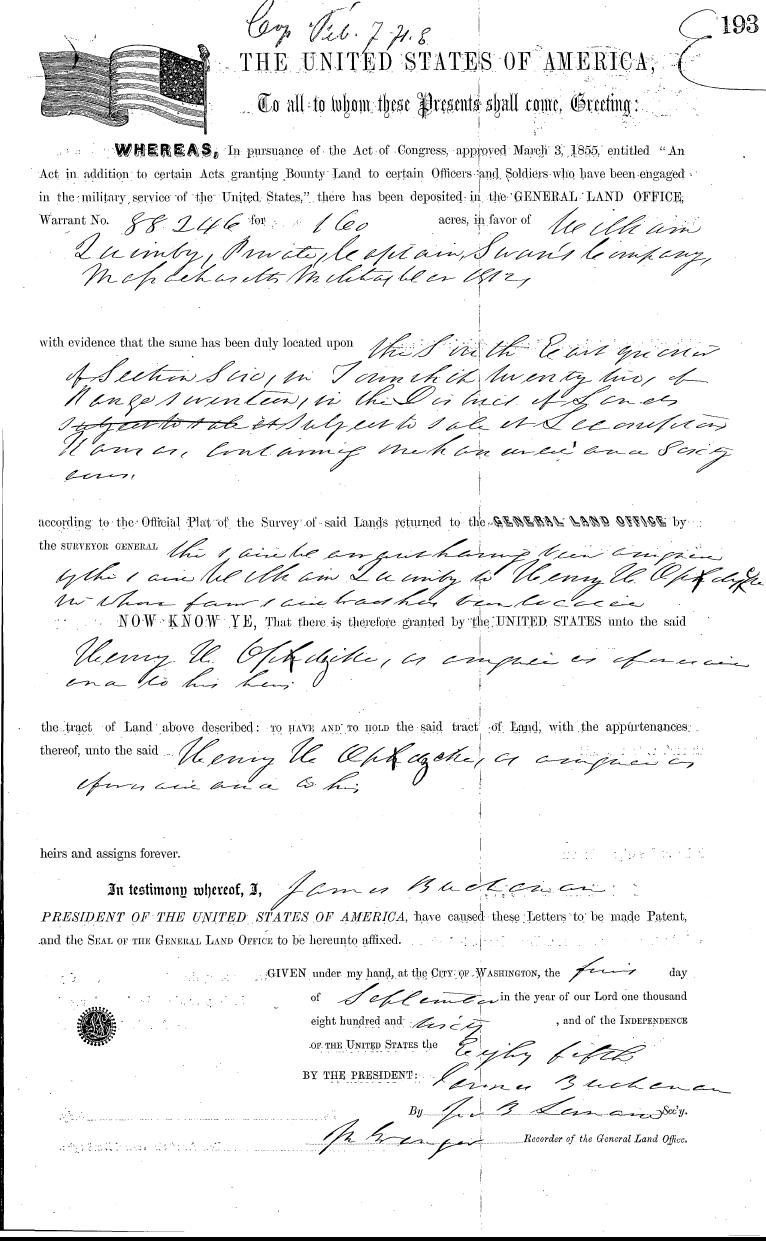 Cop Feb. 7. 78
193
THE UNITED STATES OF AMERICA,
To all to whom these Presents shall come, Greeting:
WHEREAS, In pursuance of the Act of Congress, approved March 3, 1855, entitled "An
Act in addition to certain Acts granting Bounty Land to certain Officers and Soldiers who have been engaged
in the military service of the United States," there has been deposited in the GENERAL LAND OFFICE,
Warrant No. 88246 for 160 acres, in favor of William
Quimby, Private, Captain Swan's Company,
Massachusetts Militia, War 1812,
with evidence that the same has been duly located upon the South East quarter
of Section Six, in Township twenty two, of
Range seventeen, in the District of Lands
subject to sale at subject to sale at Lecompton
Kansas, containing one hundred and Sixty
acres.
according to the Official Plat of the Survey of said Lands returned to the GENERAL LAND OFFICE by
the SURVEYOR GENERAL the said warrant having been assigned
by the said William Quimby to Henry H. Opdycke
in whose favor said tract has been located
NOW KNOW YE, That there is therefore granted by the UNITED STATES unto the said
Henry H. Opdycke, as assignee as aforesaid
and to his heirs
the tract of Land above described: TO HAVE AND TO HOLD the said tract of Land, with the appurtenances
thereof, unto the said Henry H. Opdycke, as assignee as
aforesaid and to his
heirs and assigns forever.
In testimony whereof, I, James Buchanan
PRESIDENT OF THE UNITED STATES OF AMERICA, have caused these Letters to be made Patent,
and the SEAL OF THE GENERAL LAND OFFICE to be hereunto affixed.
GIVEN under my hand, at the CITY OF WASHINGTON, the first day
of September in the year of our Lord one thousand
eight hundred and sixty, and of the INDEPENDENCE
OF THE UNITED STATES the Eighty fifth
BY THE PRESIDENT: James Buchanan
By Jno B Leonard Sec'y.
J. N. Granger Recorder of the General Land Office.